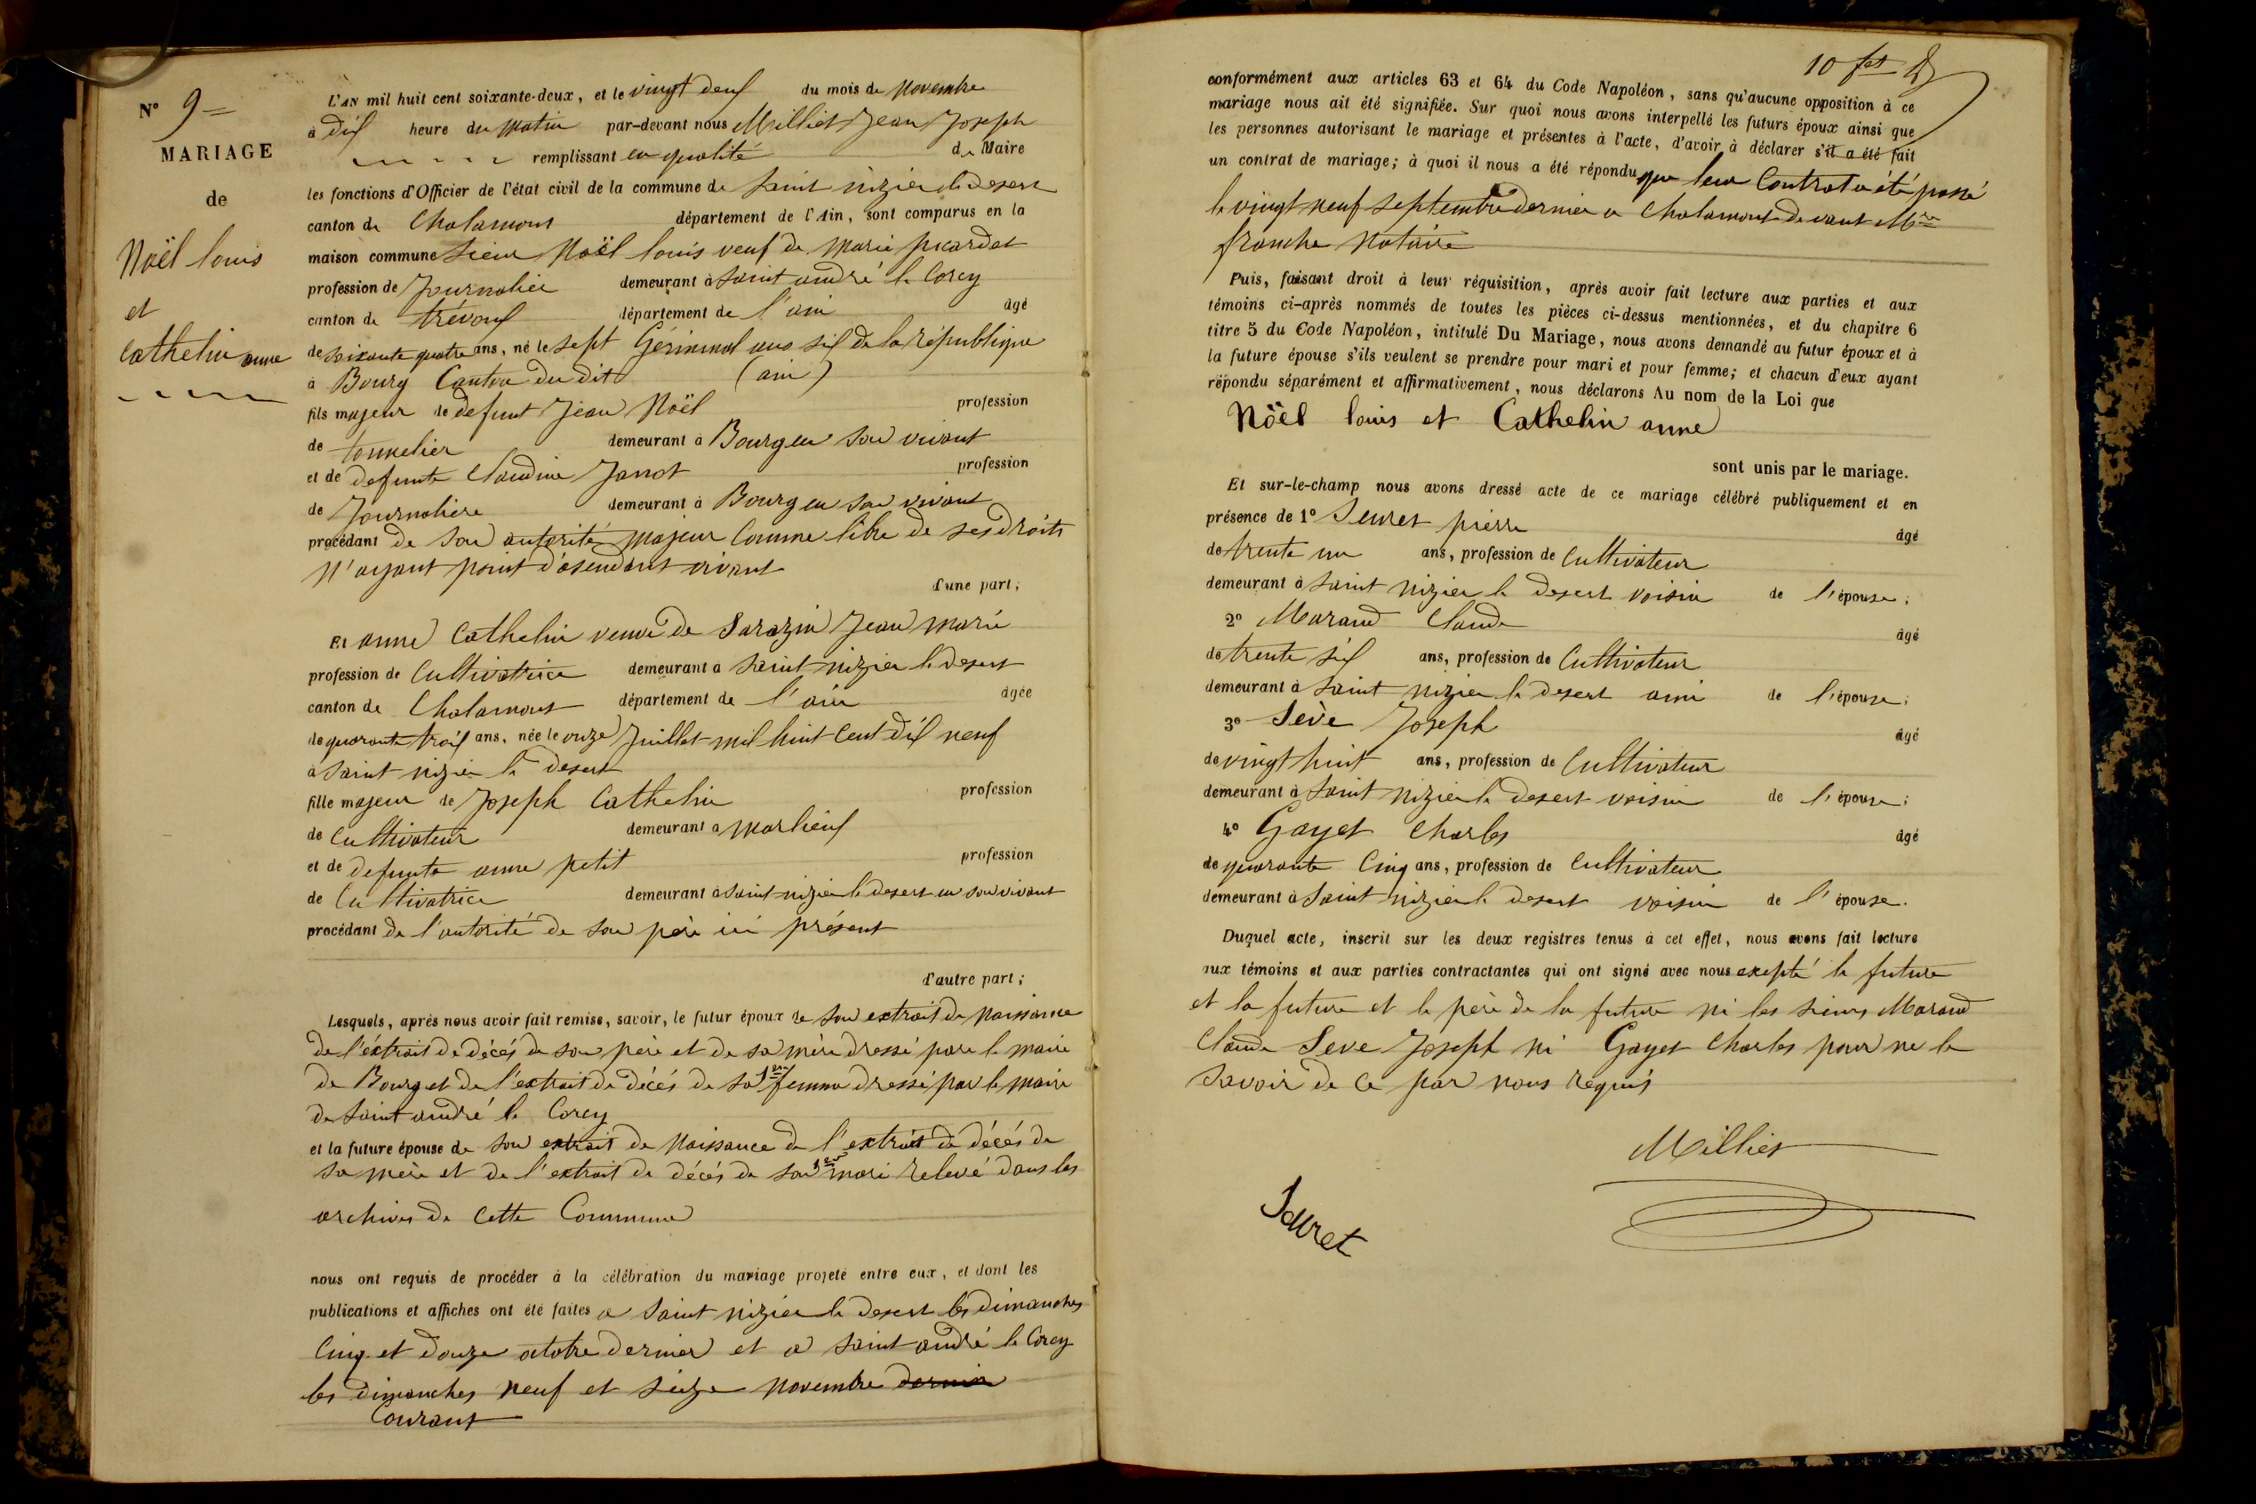 N° 9=
MARIAGE
de
Noël louis
et
Cathelin anne
L'AN mil huit cent soixante-deux, et le vingt deux du mois de Novembre
à dix heure du matin par-devant nous Milliet Jean Joseph
remplissant en qualité de Maire
les fonctions d'Officier de l'état civil de la commune de saint nizier le desert
canton de Chalamont département de l'Ain, sont comparus en la
maison commune sieur Noël louis veuf de marie picardet
profession de Journalier demeurant à saint andré le Corcy
canton de trévoux département de l'ain âgé
de soixante quatre ans, né le sept Gérminal ans six de la république
à Bourg Canton du dit (ain)
fils majeur de defunt Jean Noël profession
de tonnelier demeurant à Bourg en son vivant
et de defunte Claudine Janot profession
de Journalière demeurant à Bourg en son vivant
procédant de son autorité majeur Comme libre de ses droits
N'ayant point d'asendant vivant
d'une part;
Et anne Cathelin veuve de Sarazin Jean marie
profession de Cultivatrice demeurant à saint nizier le desert
canton de Chalamont département de l'ain âgée
de quarante trois ans, née le onze Juillet mil huit Cent dix neuf
à saint nizier le desert
fille majeur de Joseph Cathelin profession
de Cultivateur demeurant à marlieux
et de defunte anne petit profession
de Cultivatrice demeurant à saint nizier le desert en son vivant
procédant de l'autorité de son père ici présent
d'autre part;
Lesquels, après nous avoir fait remise, savoir, le futur époux de son extrait de Naissance
de l'éxtrait de décés de son père et de sa mère dressé pare le maire
de Bourg et de l'extrait de décés de sa 1ere femme dressé par le maire
de saint andré le Corcy
et la future épouse de son extrait de Naissance de l'extrait de décés de
sa mère et de l'extrait de décés de son 1er mari relevé dans les
archives de Cette Commune
nous ont requis de procéder à la célébration du mariage projeté entre eux, et dont les
publications et affiches ont été faites a saint nizier le desert les dimanches
Cinq et douze octobre dernier et a saint andré le Corcy
les dimanches neuf et seize novembre dernier
Courant
10 fet
conformément aux articles 63 et 64 du Code Napoléon, sans qu'aucune opposition à ce
mariage nous ait été signifiée. Sur quoi nous avons interpellé les futurs époux ainsi que
les personnes autorisant le mariage et présentes à l'acte, d'avoir à déclarer s'il a été fait
un contrat de mariage; à quoi il nous a été répondu que leur Contrat a été passé
le vingt neuf septembre dernier a Chalamont devant Mtre
franche Notaire
Puis, faisant droit à leur réquisition, après avoir fait lecture aux parties et aux
témoins ci-après nommés de toutes les pièces ci-dessus mentionnées, et du chapitre 6
titre 5 du Code Napoléon, intitulé Du Mariage, nous avons demandé au futur époux et à
la future épouse s'ils veulent se prendre pour mari et pour femme; et chacun d'eux ayant
répondu séparément et affirmativement, nous déclarons Au nom de la Loi que
Nöel louis et Cathelin anne
sont unis par le mariage.
Et sur-le-champ nous avons dressé acte de ce mariage célébré publiquement et en
présence de 1° Seuret pierre âgé
de trente un ans, profession de Cultivateur
demeurant à saint nizier le desert voisin de l'épouse;
2° Marand Claude âgé
de trente six ans, profession de Cultivateur
demeurant à saint nizier le desert ami de l'épouse;
3° Sève Joseph âgé
de vingt huit ans, profession de Cultivateur
demeurant à saint nizier le desert voisin de l'épouse;
4° Gayet Charles âgé
de quarante Cinq ans, profession de Cultivateur
demeurant à saint nizier le desert voisin de l'épouse.
Duquel acte, inscrit sur les deux registres tenus à cet effet, nous avons fait lecture
aux témoins et aux parties contractantes qui ont signé avec nous exepté le future
et la future et le père de la future ni les sieurs Marand
Claude Seve Joseph ni Gayet Charles pour ne le
savoir de ce par nous requis
Milliet
Seuret